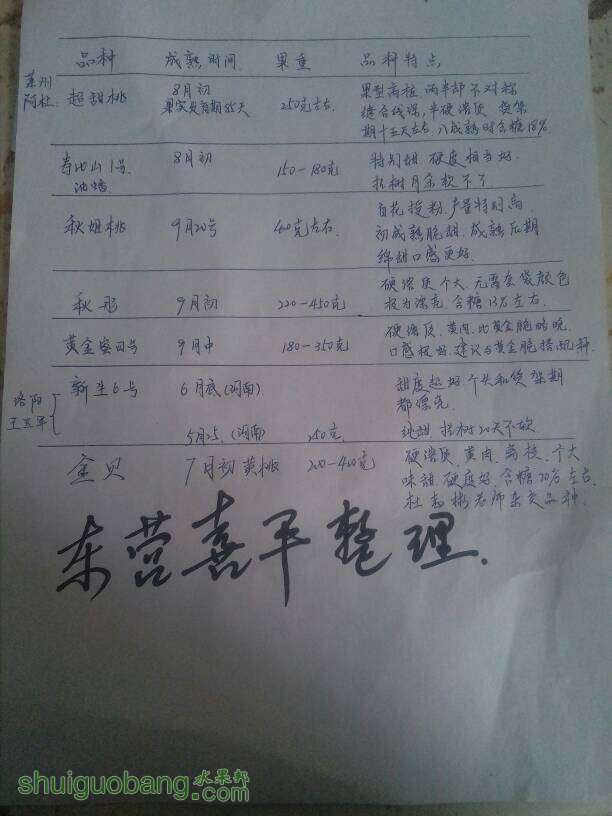 品种 成熟时间 果重 品种特点
莱州
阿杜 超甜桃 8月初 250克左右 果型高桩 两半部不对称
果实发育期85天 缝合线深,半硬溶质 货架
期十五天左右 八成熟时含糖18%
寿地山1号 8月初 150-180克 特别甜 硬度相当好.
油蟠 挂树月余软不了
秋妲桃 9月20号 400克左右 自花授粉.产量特别高
初成熟脆甜.成熟后期
绵甜口感更好.
秋彤 9月初 220-450克 硬溶质 个大.无需套袋颜色
极为漂亮.含糖13%左右.
黄金蜜四号 9月中 180-350克 硬溶质、黄肉、比黄金脆略晚.
口感极好.建议与黄金脆搭配种
洛阳
王 军 新生6号 6月底(河南) 甜度超好 个头和货架期
都漂亮.
5月25.(河南) 250克 纯甜.挂树20天不软
金贝 7月初 黄桃 200-400克 硬溶质、黄肉、离核、个大
味甜.硬度好.含糖20%左右.
杜 彬老师杂交品种.
东营喜平整理.
水果邦
shuiguobang.com